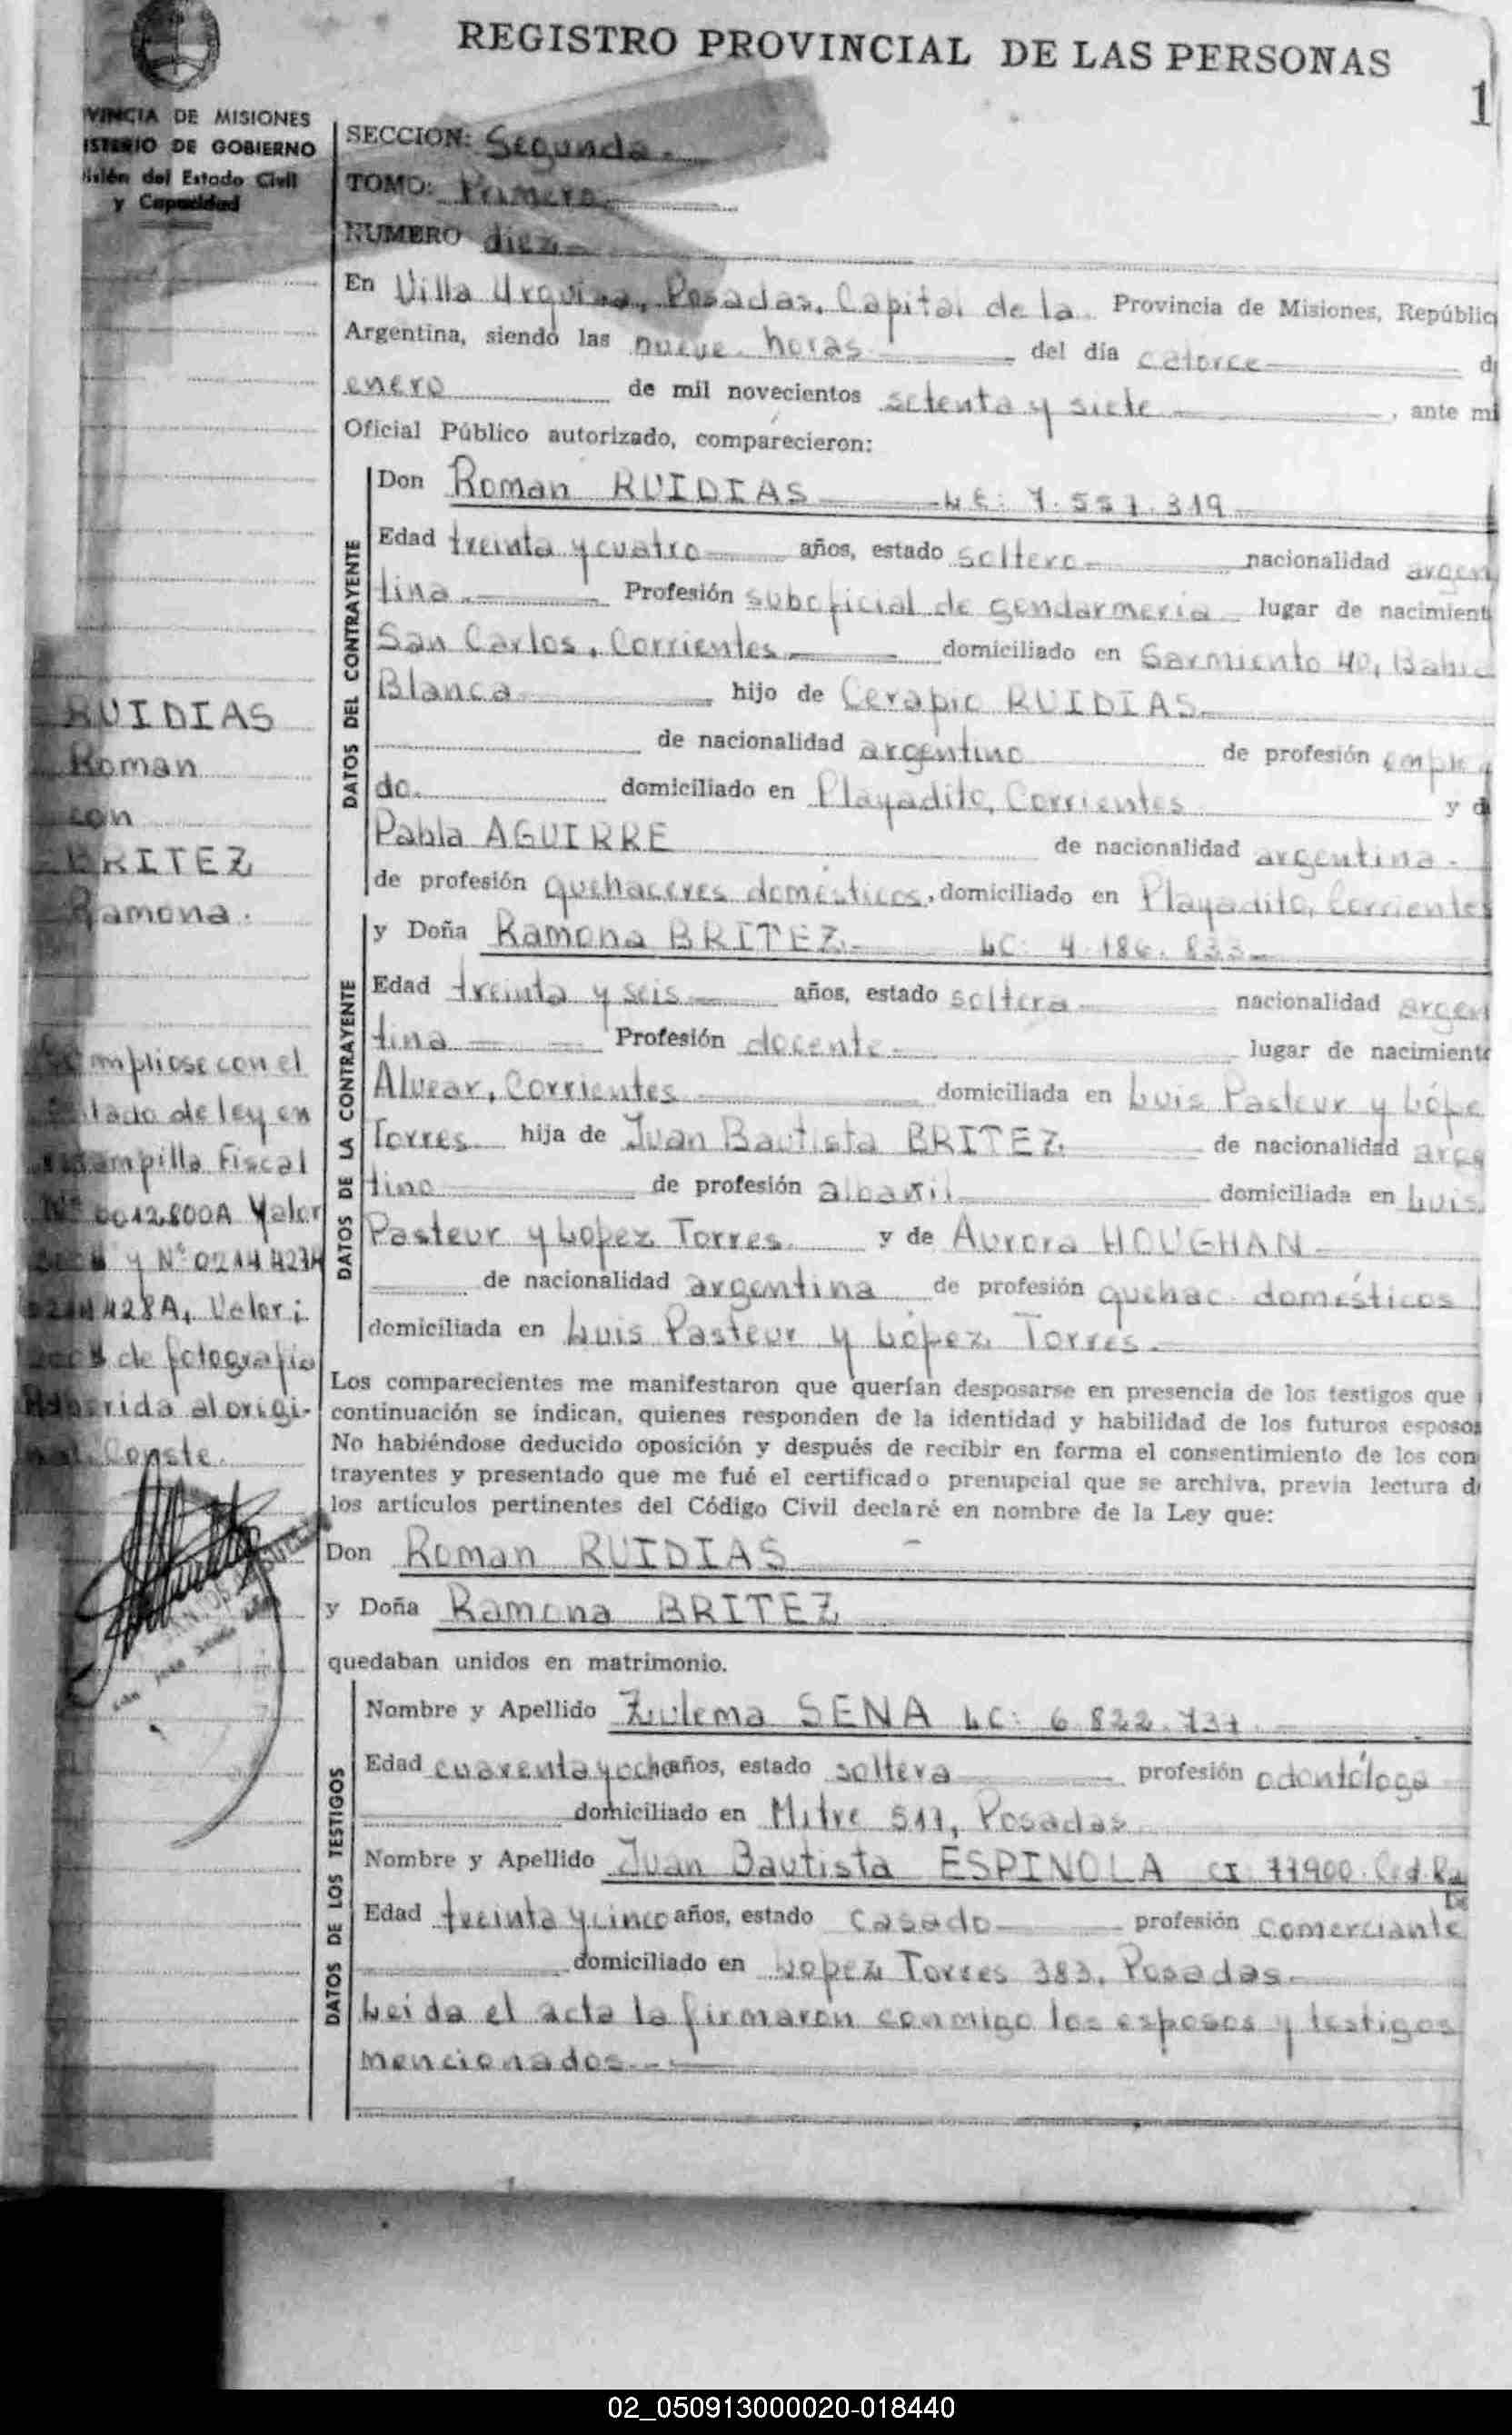 REGISTRO PROVINCIAL DE LAS PERSONAS
1
VINCIA DE MISIONES
ISTERIO DE GOBIERNO
del Estado Civil
y Capacidad
SECCION: Segunda.
TOMO: Primero
NUMERO diez
En Villa Urquiza, Posadas, Capital de la Provincia de Misiones, Repúblic
Argentina, siendo las nueve horas del día catorce d
enero de mil novecientos setenta y siete, ante mi
Oficial Público autorizado, comparecieron:
DATOS DEL CONTRAYENTE
Don Roman RUIDIAS LE: 7.557.319
Edad treinta y cuatro años, estado soltero nacionalidad argen
tina. Profesión suboficial de gendarmeria lugar de nacimient
San Carlos, Corrientes domiciliado en Sarmiento 40, Bahia
Blanca hijo de Cerapio RUIDIAS
de nacionalidad argentino de profesión emplea
do. domiciliado en Playadito, Corrientes y d
Pabla AGUIRRE de nacionalidad argentina.
de profesión quehaceres domésticos, domiciliado en Playadito, Corrientes
DATOS DE LA CONTRAYENTE
y Doña Ramona BRITEZ. LC: 4.186.833
Edad treinta y seis años, estado soltera nacionalidad argen
tina Profesión docente lugar de nacimiento
Alvear, Corrientes domiciliada en Luis Pasteur y Lópe
Torres hija de Juan Bautista BRITEZ. de nacionalidad arge
tino de profesión albañil domiciliada en Luis
Pasteur y Lopez Torres. y de Aurora HOUGHAN
de nacionalidad argentina de profesión quehac. domésticos
domiciliada en Luis Pasteur y López Torres.
Los comparecientes me manifestaron que querían desposarse en presencia de los testigos que
continuación se indican, quienes responden de la identidad y habilidad de los futuros esposos
No habiéndose deducido oposición y después de recibir en forma el consentimiento de los con
trayentes y presentado que me fué el certificado prenupcial que se archiva, previa lectura d
los artículos pertinentes del Código Civil declaré en nombre de la Ley que:
Don Roman RUIDIAS
y Doña Ramona BRITEZ
quedaban unidos en matrimonio.
DATOS DE LOS TESTIGOS
Nombre y Apellido Zulema SENA LC: 6.822.737.
Edad cuarenta y ocho años, estado soltera profesión odontóloga
domiciliado en Mitre 517, Posadas
Nombre y Apellido Juan Bautista ESPINOLA CI 77900
Edad treinta y cinco años, estado casado profesión comerciante
domiciliado en Lopez Torres 383, Posadas.
Leida el acta la firmaron conmigo los esposos y testigos
mencionados.
RUIDIAS
Roman
con
BRITEZ
Ramona.
Cumpliose con el
de ley en
estampilla Fiscal
Nº 0012800A Valor
y Nº 0214427A
0214428A, Valor
de fotografia
Adherida al origi-
nal. Conste.
02_050913000020-018440